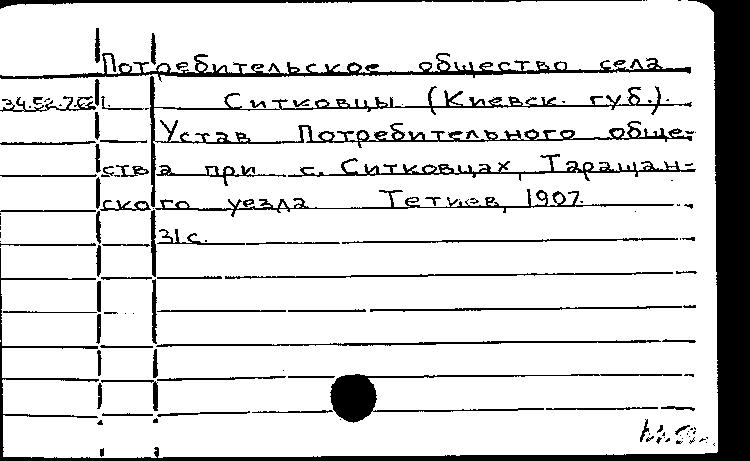 Потребительское общество села
34.52.7.62
Ситковцы (Киевск. губ.).
Устав Потребительного обще=
ства при с. Ситковцах, Таращан=
ского уезда Тетиев, 1907.
31 с.